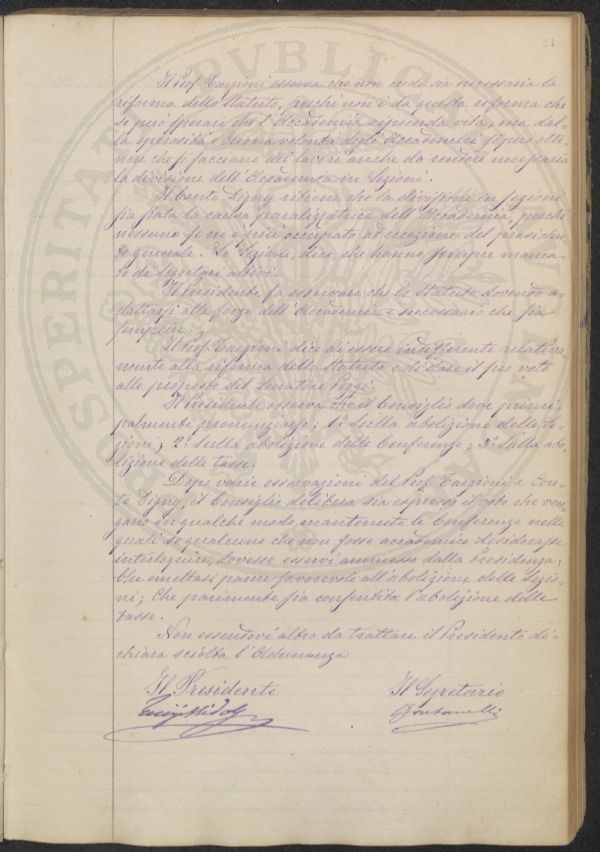 21
Il Prof. Targioni osserva che non crede sia necessaria la
riforma dello Statuto, perchè non è da questa riforma che
si può sperare che l'Accademia riprenda vita, ma dal-
la operosità e buona volontà degli Accademici si può otte-
nere che si facciano dei lavori anche da rendere necessaria
la divisione dell'Accademia in Sezioni.
Il Conte Digny ritiene che la divisione in sezioni
sia stata la causa paralizzatrice dell'Accademia, perchè
nessuno se ne è più occupato ad eccezione del presiden-
te generale. Le Sezioni, dice che hanno sempre manca-
to di Segretari attivi.
Il Presidente fa osservare che lo Statuto dovendo a-
dattarsi alle forze dell'Accademia è necessario che sia
semplice.
Il Prof. Targioni dice di essere indifferente relativa-
mente alla riforma dello Statuto e di dare il suo voto
alle proposte del Senatore
Il Presidente osserva che il Consiglio deve princi-
palmente pronunziarsi; 1° Sulla abolizione delle Se-
zioni; 2° Sulla abolizione delle Conferenze; 3° Sulla abo-
lizione delle tasse.
Dopo varie osservazioni del Prof. Targioni e Con-
te Digny, il Consiglio delibera sia espresso il voto che ven-
gano in qualche modo mantenute le Conferenze nelle
quali se qualcuno che non fosse accademico desiderasse
interloquire, dovesse esservi ammesso dalla Presidenza;
Che emettasi parere favorevole all'abolizione delle Sezio-
ni; Che parimente sia consentita l'abolizione delle
tasse.
Non essendovi altro da trattare il Presidente di-
chiara sciolta l'Adunanza
Il Presidente Il Segretario
Luigi Ridolfi Fontanelli
PVBLICAE PROSPERITATI